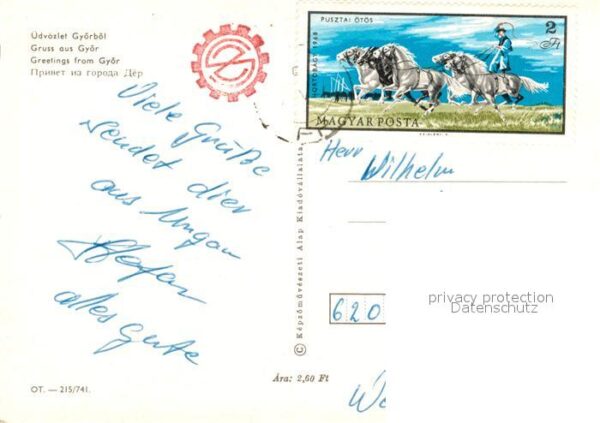 Üdvözlet Győrből
Gruss aus Győr
Greetings from Győr
Привет из города Дёр
Viele Grüße
sendet dier
aus Ungarn
Stefan
alles Gute
OT. — 215/741.
© Képzőművészeti Alap Kiadóvállalata
Ára: 2,60 Ft
PUSZTAI ÖTÖS
2 Ft
HORTOBÁGY 1968
MAGYAR POSTA
Herr
Wilhelm
620
privacy protection
Datenschutz